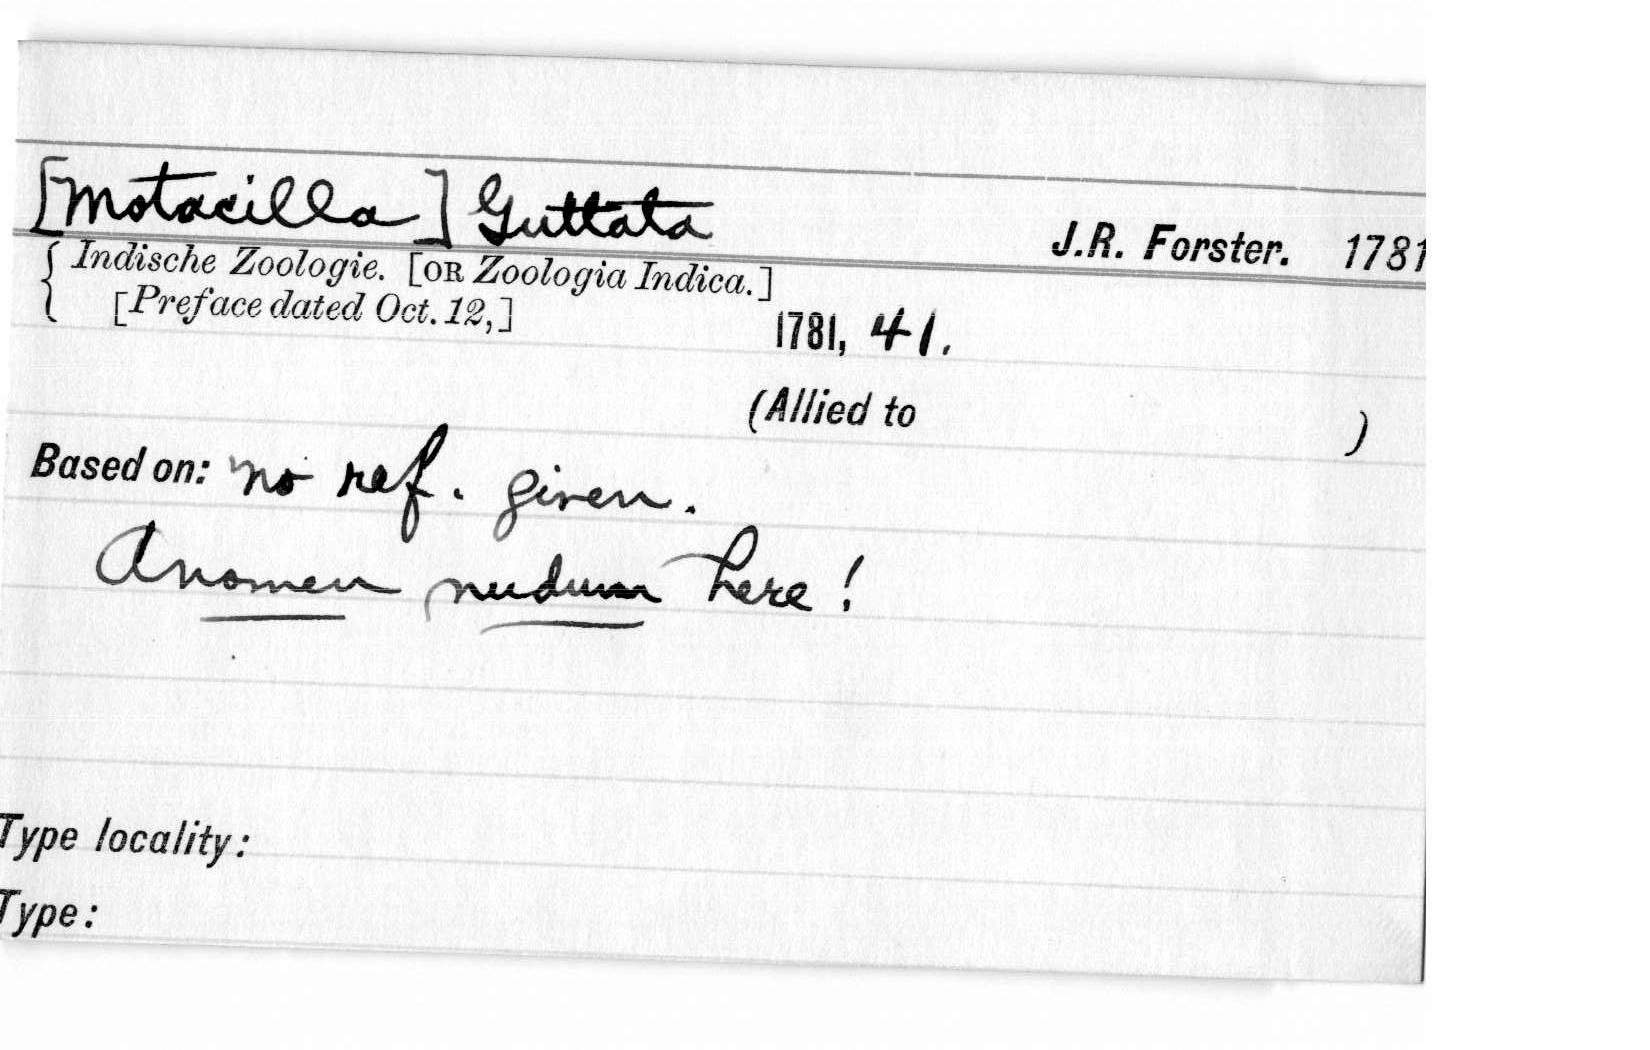 [Motacilla] Guttata J.R. Forster. 1781
{ Indische Zoologie. [OR Zoologia Indica.]
[Preface dated Oct. 12,] 1781, 41.
(Allied to )
Based on: no ref. given.
A nomen nudum here!
Type locality:
Type: